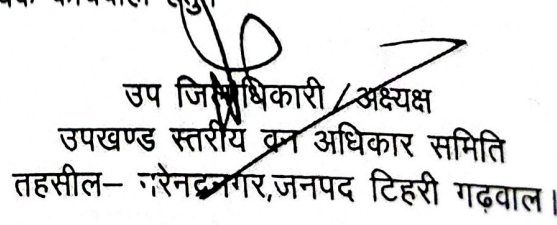 उप जिलाधिकारी / अक्ष्यक्ष
उपखण्ड स्तरीय वन अधिकार समिति
तहसील– नरेनद्रनगर,जनपद टिहरी गढ़वाल।